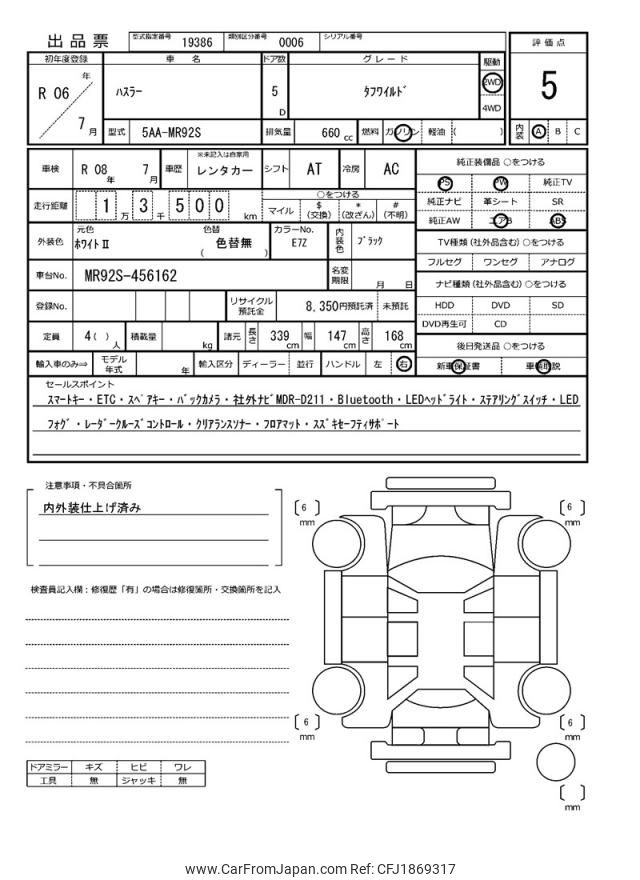 出品票 型式指定番号 19386 類別区分番号 0006 シリアル番号
評価点
5
内装 A B C
初年度登録 車名 ドア数 グレード 駆動
R 06 年 7月 ハスラー 5 D タフワイルド 2WD 4WD
型式 5AA-MR92S 排気量 660 cc 燃料 ガソリン 軽油 ( )
車検 R 08 年 7 月 車歴 ※未記入は自家用 レンタカー シフト AT 冷房 AC
走行距離 1 万 3 千 5 0 0 km ○をつける
マイル $ (交換) * (改ざん) # (不明)
外装色 元色 ホワイトⅡ 色替 色替無 ( ) カラーNo. E7Z 内装色 ブラック
車台No. MR92S-456162 名変期限 月 日
登録No. リサイクル預託金 8,350円預託済 未預託
定員 4( ) 人 積載量 kg 諸元 長さ 339 cm 幅 147 cm 高さ 168 cm
輸入車のみ⇨ モデル年式 年 輸入区分 ディーラー 並行 ハンドル 左 右
純正装備品 ○をつける
PS PW 純正TV
純正ナビ 革シート SR
純正AW エアB ABS
TV種類(社外品含む) ○をつける
フルセグ ワンセグ アナログ
ナビ種類(社外品含む) ○をつける
HDD DVD SD
DVD再生可 CD
後日発送品 ○をつける
新車保証書 車輌取説
セールスポイント
スマートキー・ETC・スペアキー・バックカメラ・社外ナビMDR-D211・Bluetooth・LEDヘッドライト・ステアリングスイッチ・LED
フォグ・レーダークルーズコントロール・クリアランスソナー・フロアマット・スズキセーフティサポート
注意事項・不具合箇所
内外装仕上げ済み
検査員記入欄:修復歴「有」の場合は修復箇所・交換箇所を記入
[ 6 ] mm
[ 6 ] mm
[ 6 ] mm
[ 6 ] mm
[ ] mm
ドアミラー キズ ヒビ ワレ
工具 無 ジャッキ 無
www.CarFromJapan.com Ref: CFJ1869317